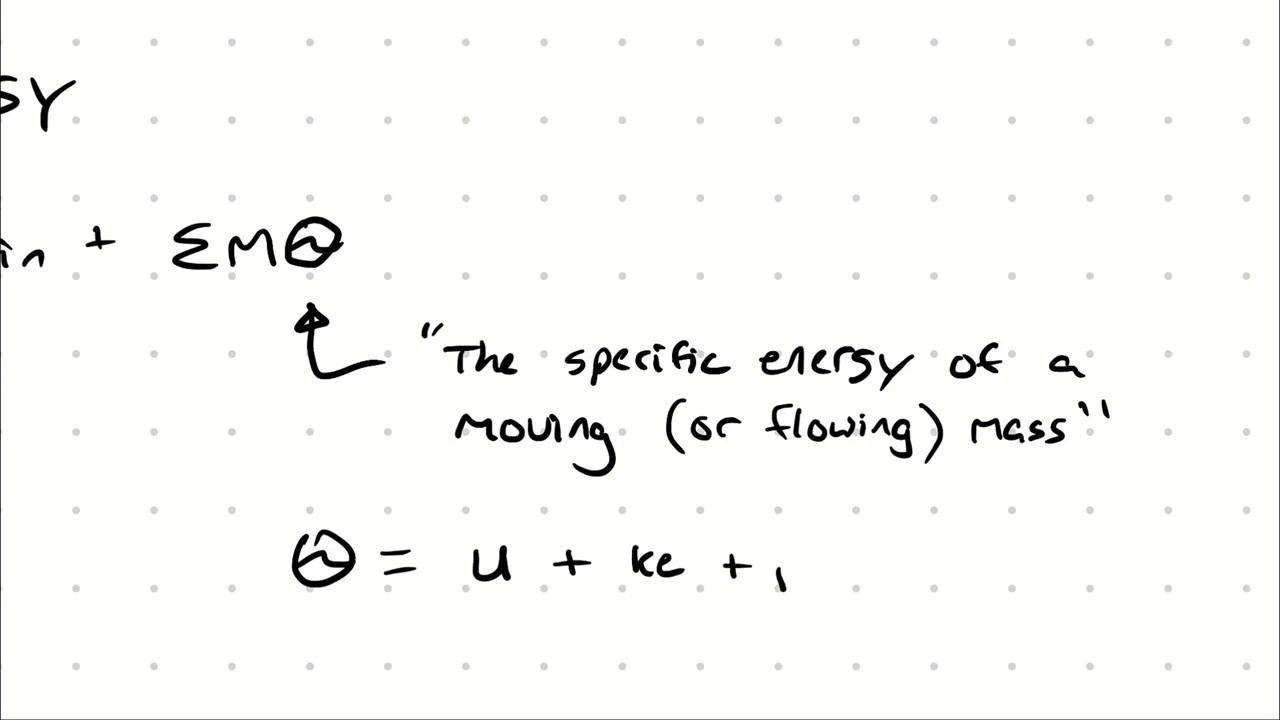 SY
in + ΣmΘ
"The specific energy of a
moving (or flowing) mass"
Θ = u + ke +